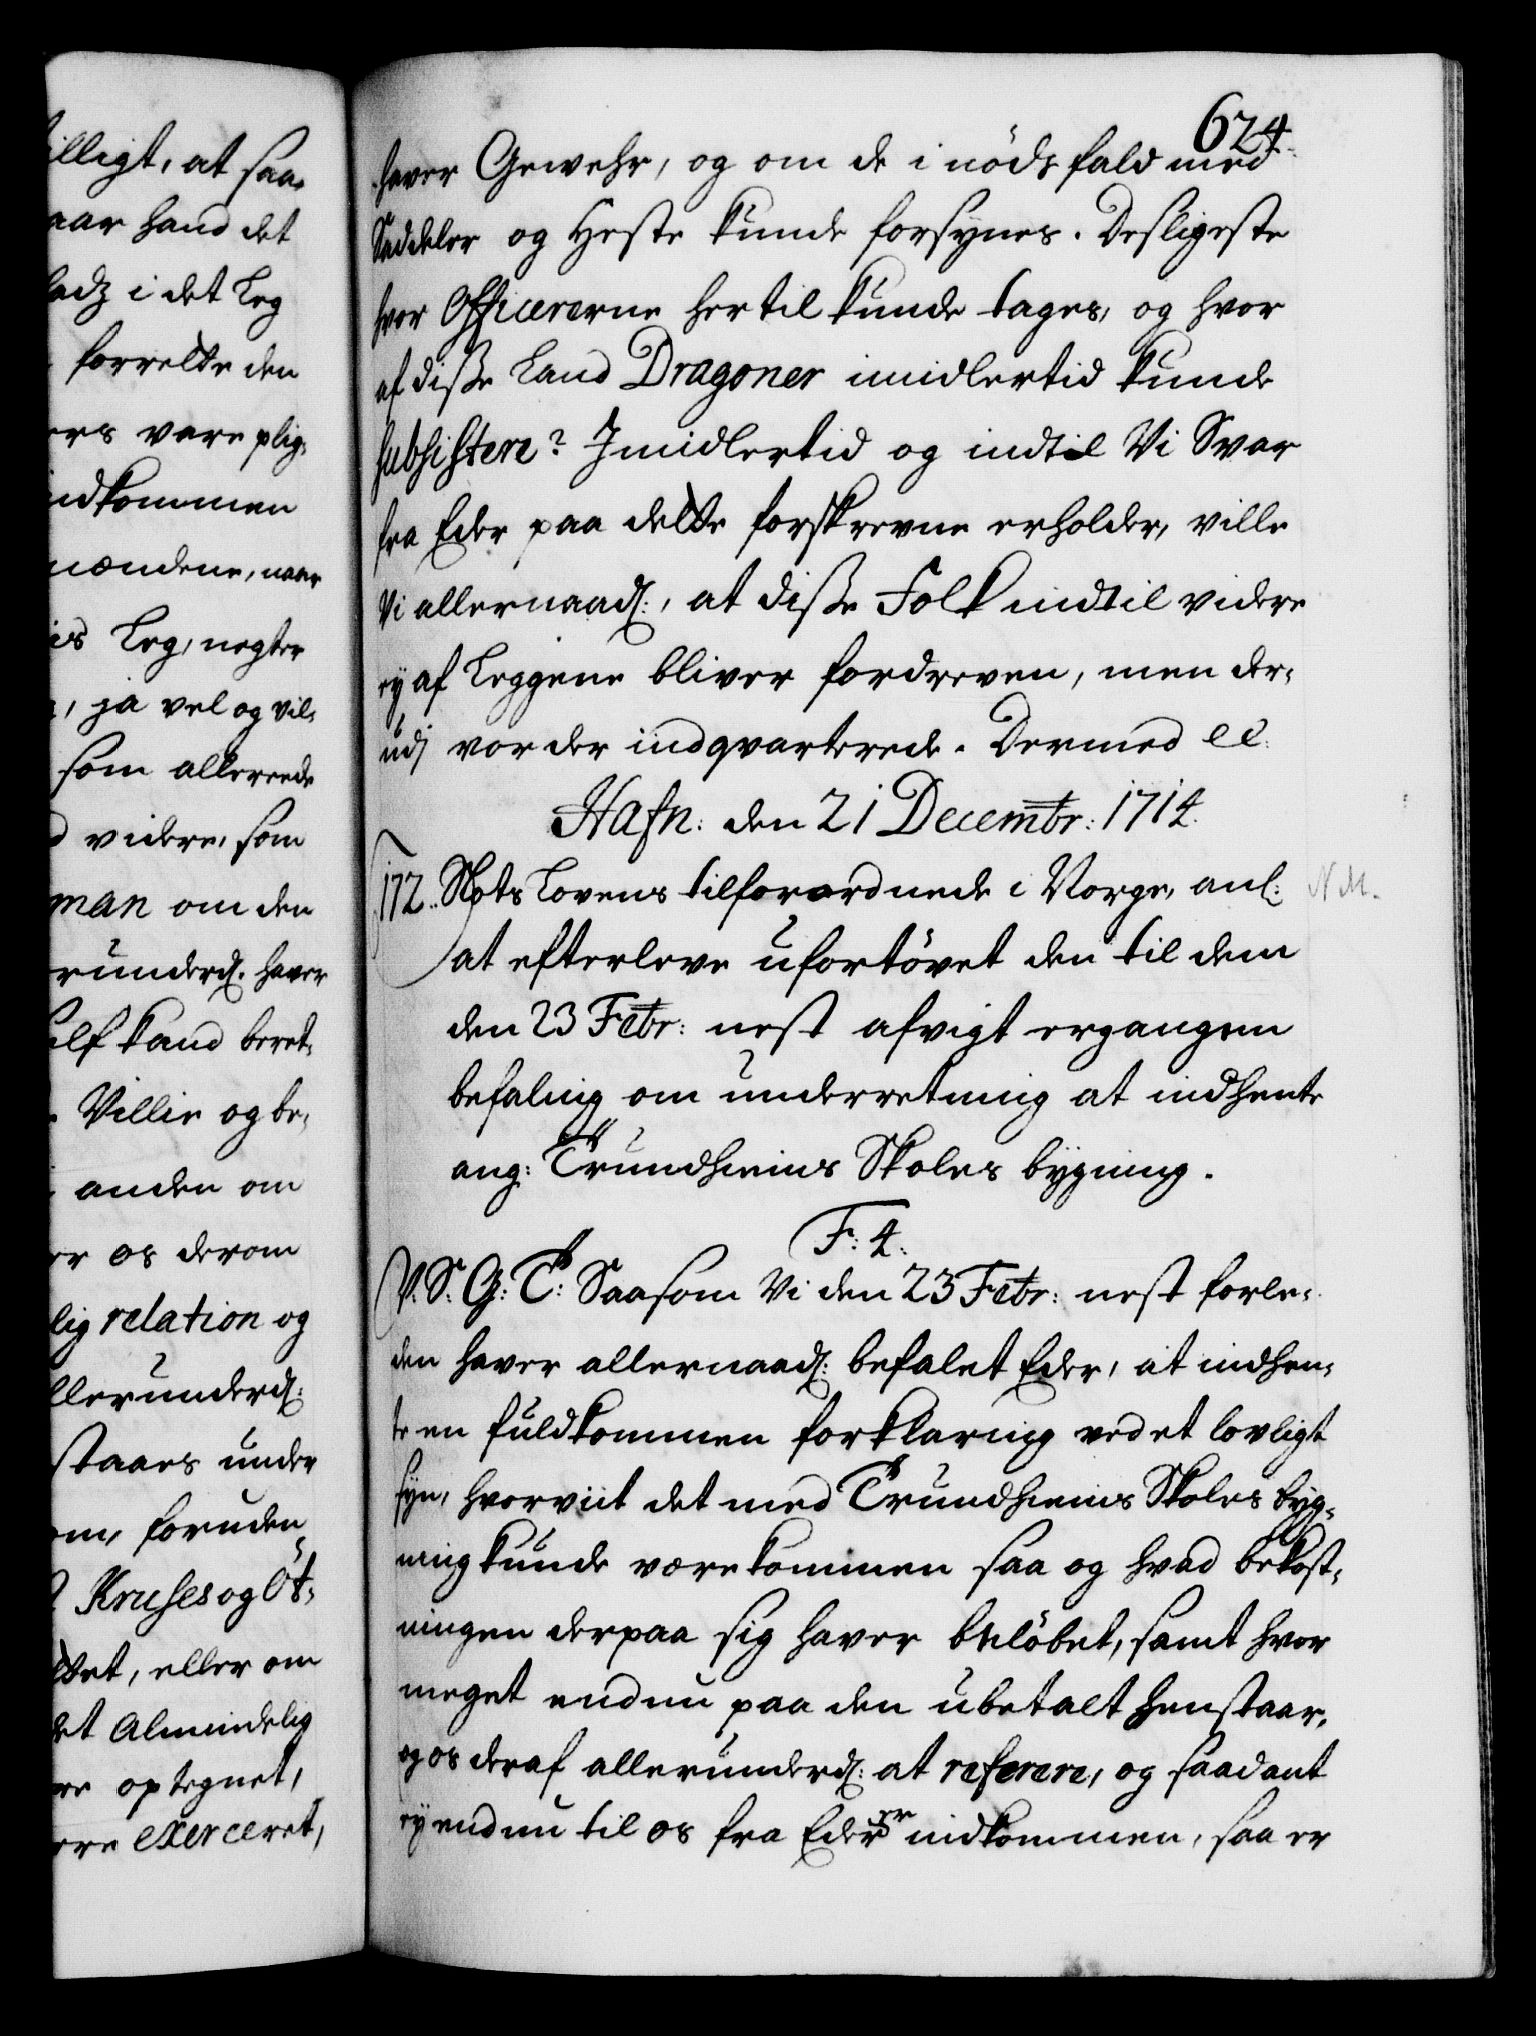 624
illigt, at saa„
aar hand det
ladz i det Leg
forrette den
ers vare plig„
indkommen
mændene, naar
is Leg, negter
, ja vel og vil„
som allereede
d videre, som
man om den
erunderd: haver
self kand beret„
Villie og be„
anden om
er os derom
lig relation og
llerunderd:
staaes under
om, foruden
Kruses og Ot„
ttet, eller om
et Almindelig
re optegnet,
ere exerceret,
haver Gewehr, og om de i nöds fald med
Saddeler og Heste kunde forsynes. Desligeste
hvor Officererne hertil kunde tages, og hvor
af disse Land Dragoner imidlertid kunde
subsistere? Imidlertid og indtil Vi Svar
fra Eder paa dette forskrevne erholder, ville
Vi allernaad:, at disse Folk indtil videre
ey af Leggene bliver fordreven, men der„
udj vorder indqvarterede. Dermed ec:
Hafn: den 21 Decembr: 1714.
172. Slots Lovens tilforordnede i Norge, anl: N M.
at efterleve ufortövet den til dem
den 23 Febr: nest afvigt ergangen
befaling om underretning at indhente
ang: Trundhiems Skoles bygning.
F: 4.
V. S: G: T: Saasom Vi den 23 Febr: nest forle„
den haver allernaad: befalet Eder, at indhen„
te en fuldkommen forklaring ved et lovligt
syn, hvorviit det med Trundhiems Skoles byg„
ning kunde være kommen saa og hvad bekost„
ningen derpaa sig haver belöbet, samt hvor
meget endnu paa den ubetalt henstaar,
og os deraf allerunderd: at referere, og saadant
ey endnu til os fra Eder er indkommen, saa er